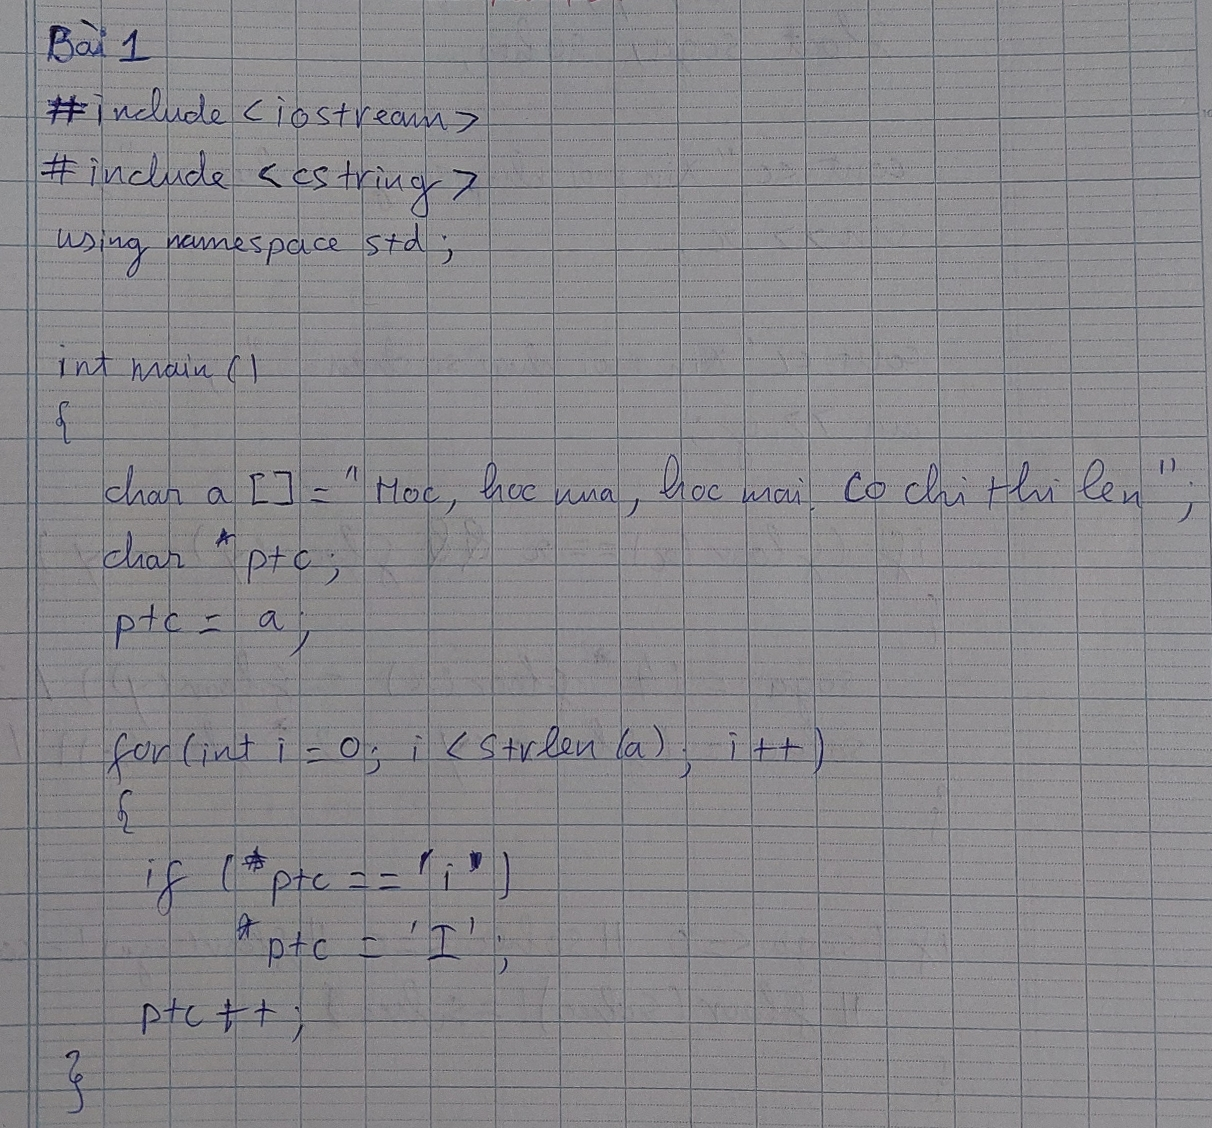 Bài 1
#include <iostream>
#include <cstring>
using namespace std;
int main ()
{
char a [] = "Hoc, hoc nua, hoc mai. Co chi thi len";
char *ptc;
ptc = a;
for (int i = 0; i < strlen (a); i++)
{
if (*ptc == 'i')
*ptc = 'I';
ptc++;
}